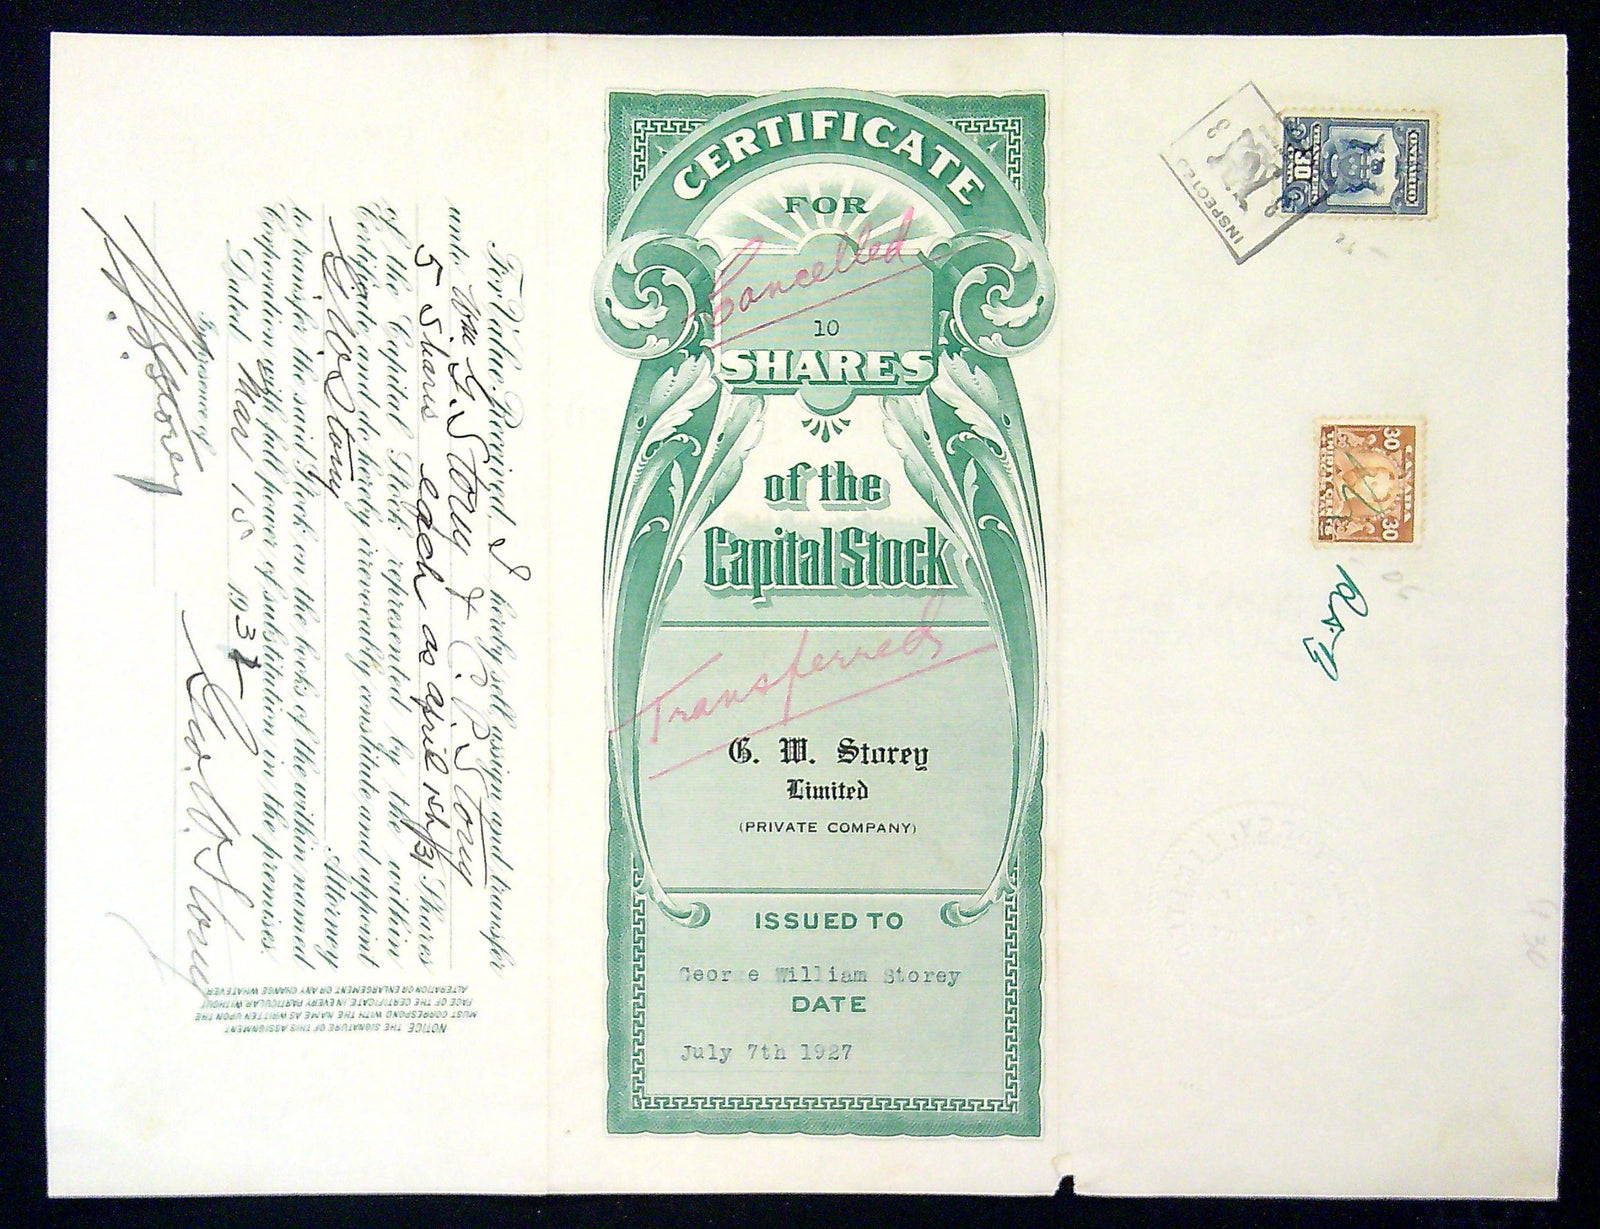 For Value Received, I hereby sell, assign and transfer
unto Wm G. Story & C. P. Story
5 Shares each as April 15th/31 Shares
of the Capital Stock represented by the within
Certificate and do hereby irrevocably constitute and appoint
Attorney
to transfer the said Stock on the books of the within named
Corporation with full power of substitution in the premises.
Dated May 15 193
In presence of
NOTICE THE SIGNATURE OF THIS ASSIGNMENT
MUST CORRESPOND WITH THE NAME AS WRITTEN UPON THE
FACE OF THE CERTIFICATE IN EVERY PARTICULAR WITHOUT
ALTERATION OR ENLARGEMENT OR ANY CHANGE WHATEVER
CERTIFICATE
FOR
Cancelled
10
SHARES
of the
Capital Stock
Transferred
G. W. Storey
Limited
(PRIVATE COMPANY)
ISSUED TO
Geor e William Storey
DATE
July 7th 1927
INSPECTED
ONTARIO
30
CANADA
30 30